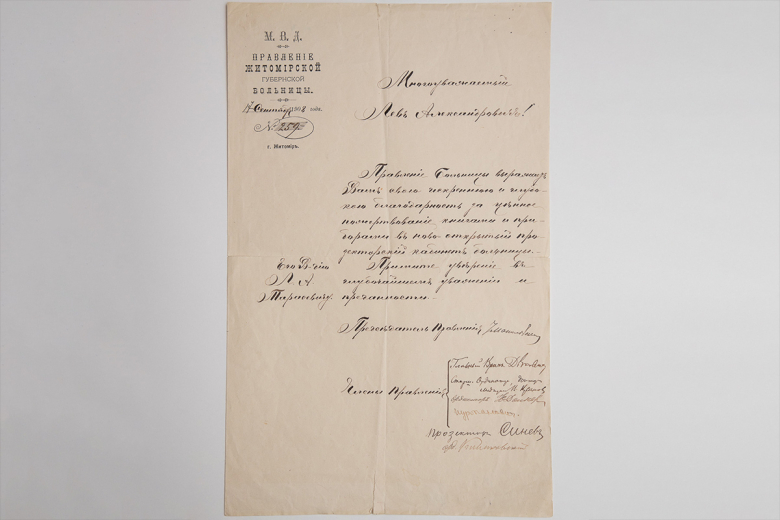 М. В. Д.
ПРАВЛЕНІЕ
ЖИТОМІРСКОЙ
ГУБЕРНСКОЙ
БОЛЬНИЦЫ.
Сентября 1908 года.
№ 2592
г. Житоміръ.
Многоуважаемый
Левъ Александровичъ!
Правленіе Больницы выражаетъ
Вамъ свою искреннюю и глубо-
кою благодарность за цѣнное
пожертвованіе книгами и при-
борами въ ново открытый про-
зекторскій кабинетъ больницы.
Примите увѣреніе въ
глубочайшемъ уваженіи и
преданности.
Его
Л. А.
Тарасевичу.
Предсѣдатель Правленія
Члены Правленія
Главный Врачъ
Старш. Ординаторъ
Ординаторъ
Прозекторъ Синев